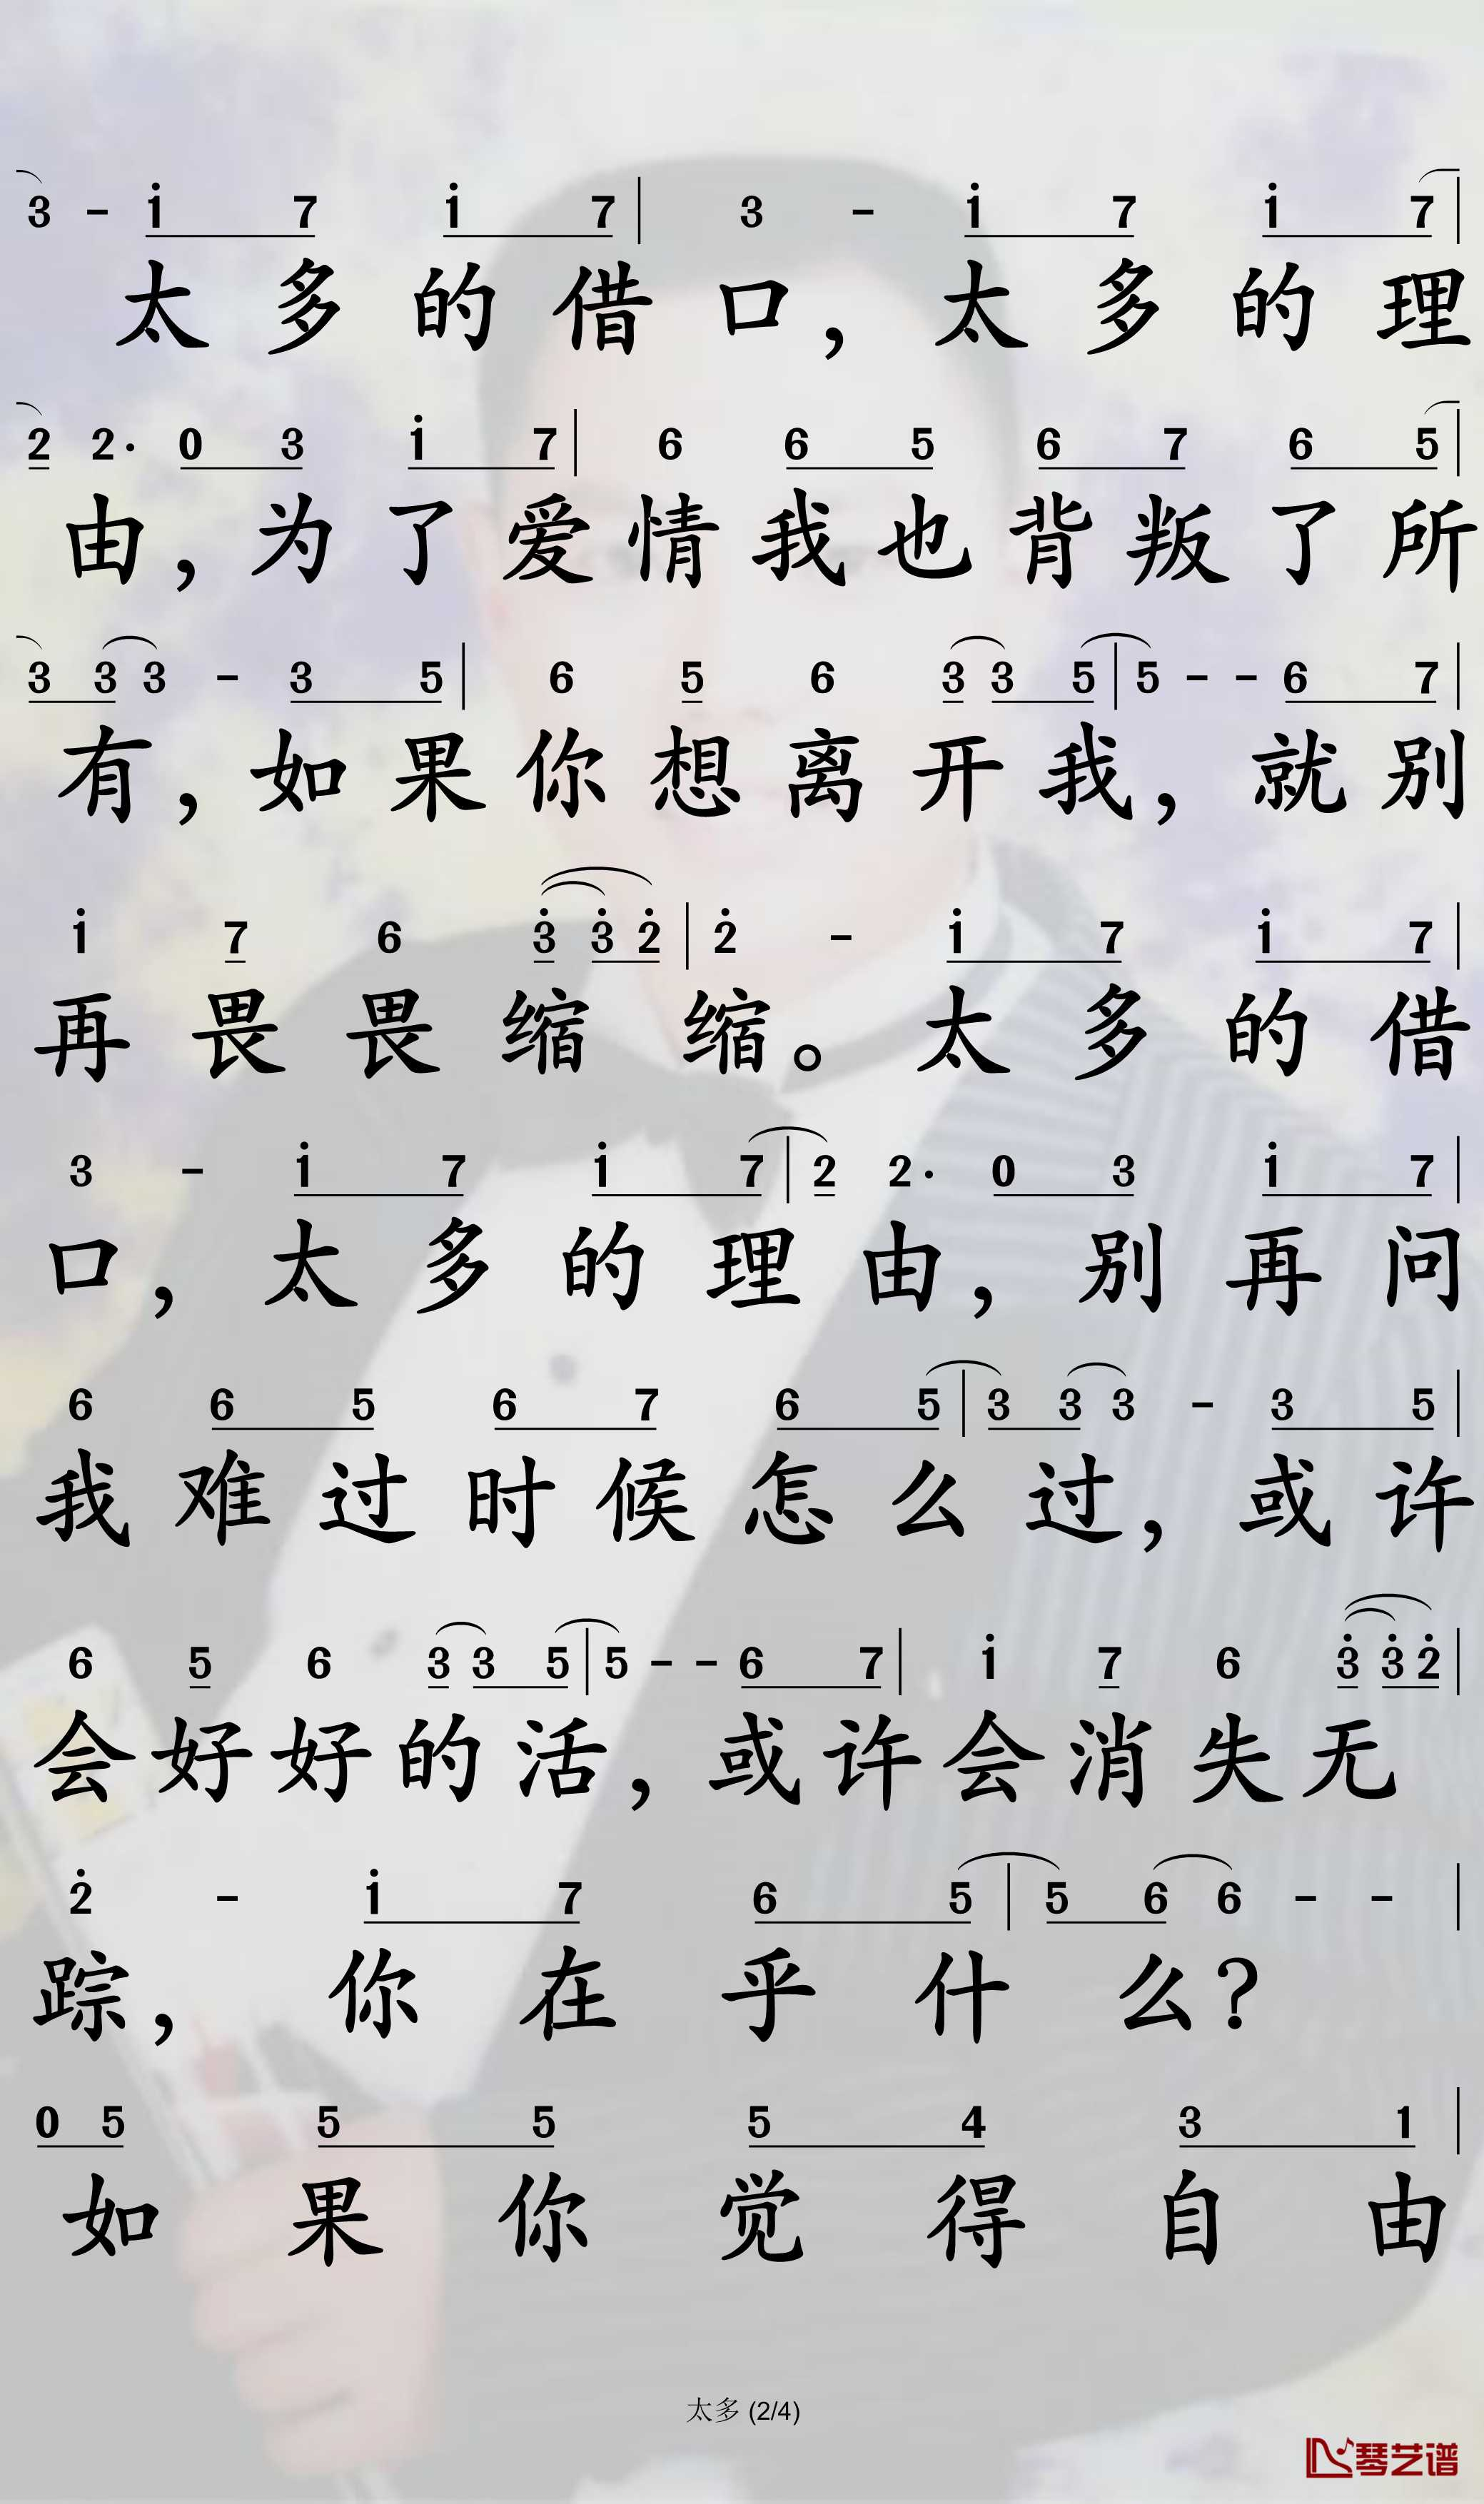 3 - i 7 i 7 | 3 - i 7 i 7 |
太多的借口，太多的理
2 2· 0 3 i 7 | 6 6 5 6 7 6 5 |
由，为了爱情我也背叛了所
3 3 3 - 3 5 | 6 5 6 3 3 5 | 5 - - 6 7 |
有，如果你想离开我，就别
i 7 6 3̇ 3̇ 2̇ | 2̇ - i 7 i 7 |
再畏畏缩缩。太多的借
3 - i 7 i 7 | 2 2· 0 3 i 7 |
口，太多的理由，别再问
6 6 5 6 7 6 5 | 3 3 3 - 3 5 |
我难过时候怎么过，或许
6 5 6 3 3 5 | 5 - - 6 7 | i 7 6 3̇ 3̇ 2̇ |
会好好的活，或许会消失无
2̇ - i 7 6 5 | 5 6 6 - - |
踪，你在乎什么？
0 5 5 5 5 4 3 1 |
如果你觉得自由
太多 (2/4)
琴艺谱